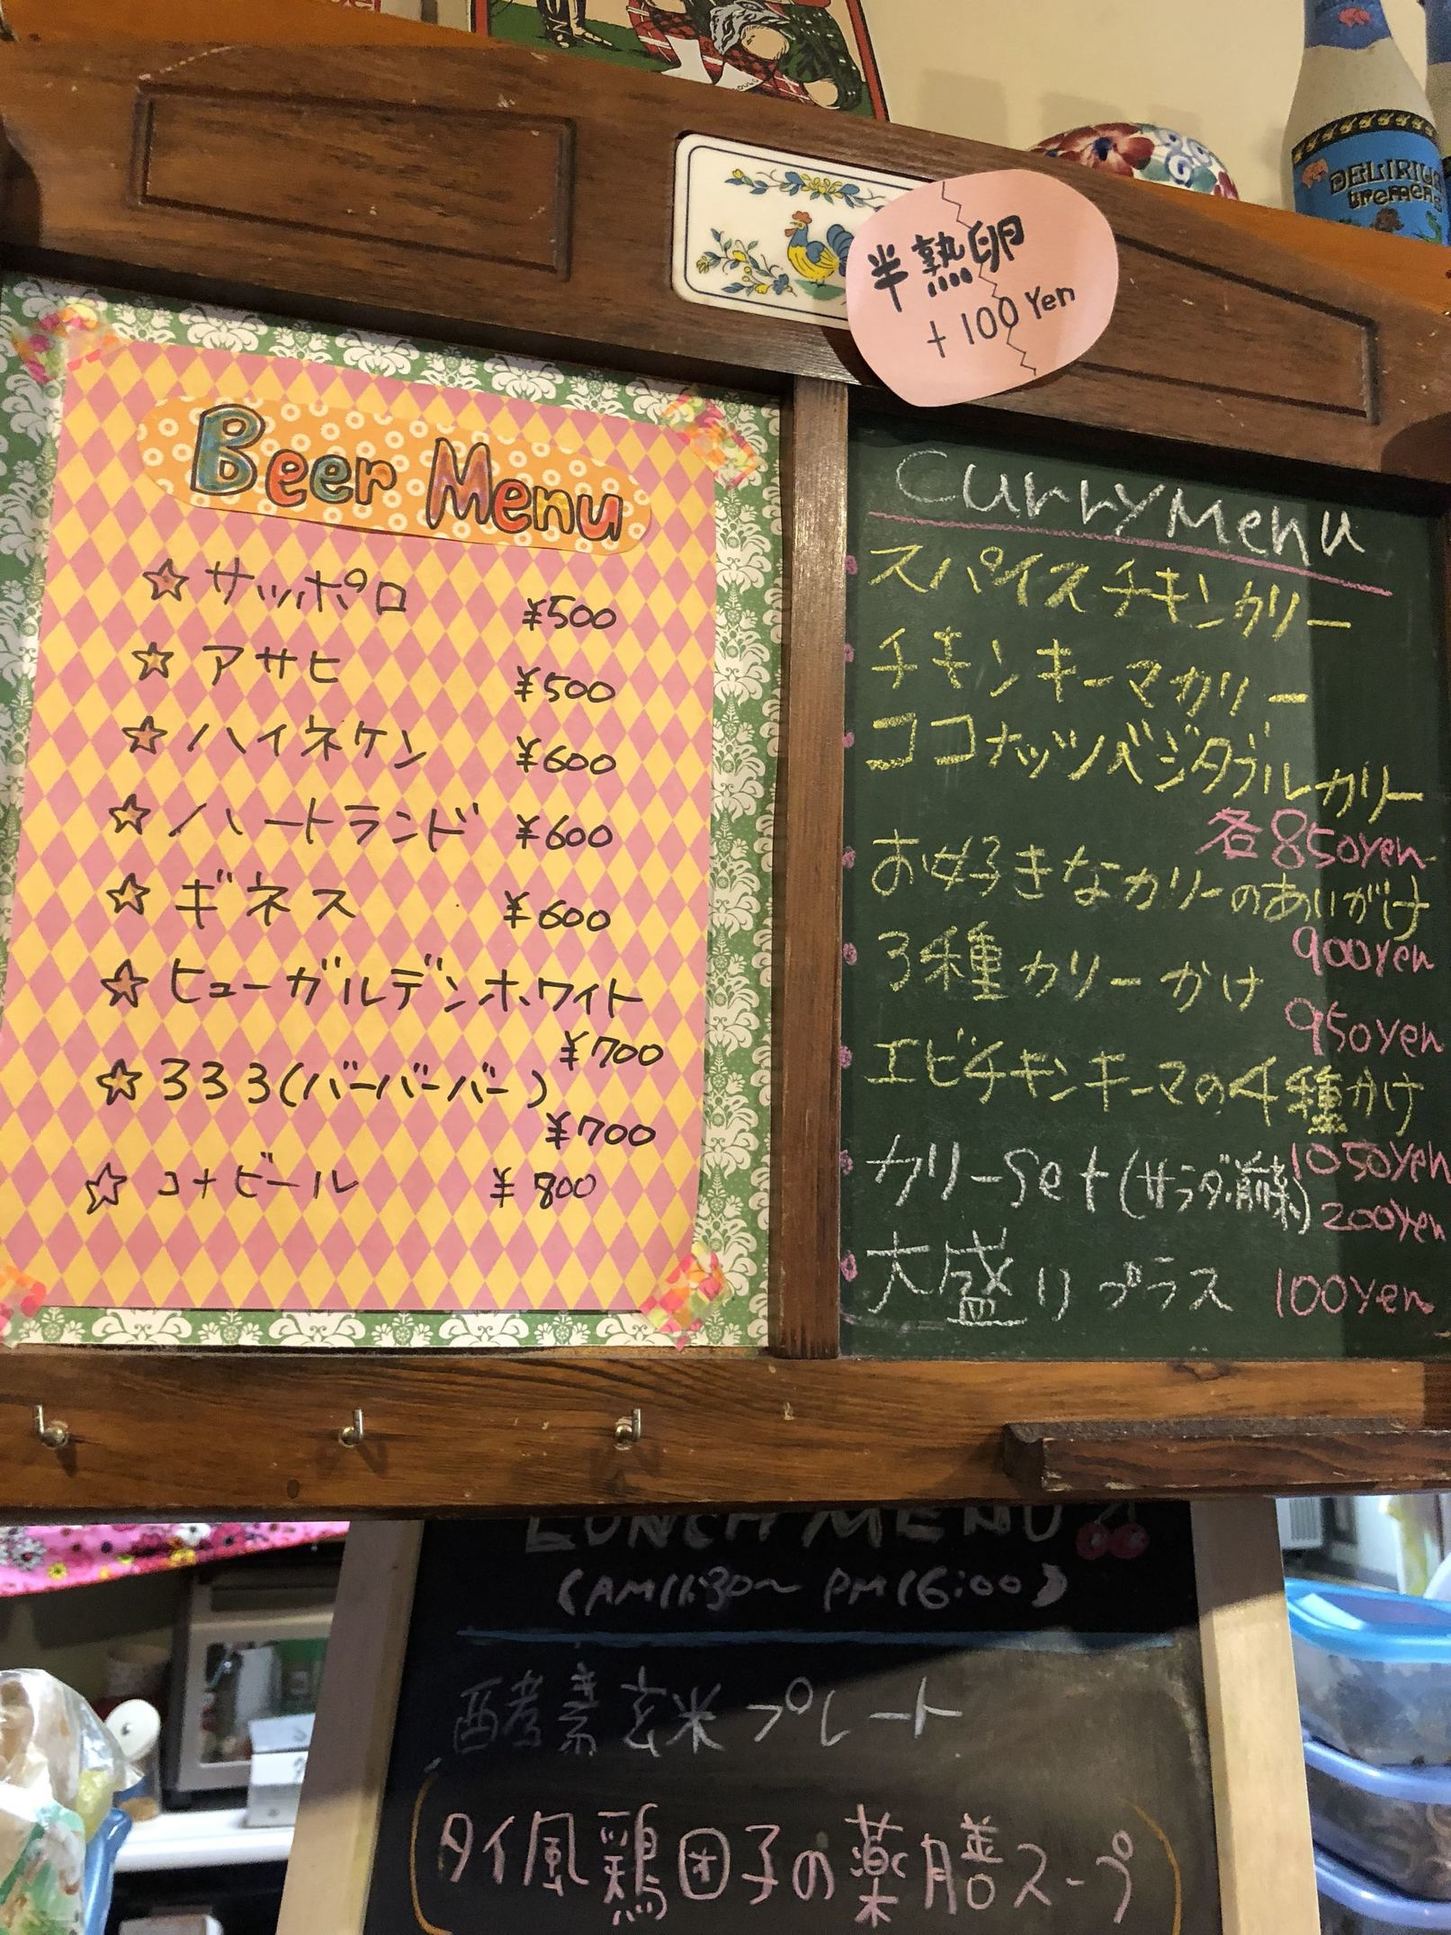 DELIRIU
Tremens
半熟卵
+100Yen
Beer Menu
☆サッポロ ¥500
☆アサヒ ¥500
☆ハイネケン ¥600
☆ハートランド ¥600
☆ギネス ¥600
☆ヒューガルデンホワイト
¥700
☆333(バーバーバー)
¥700
☆コナビール ¥800
Curry Menu
スパイスチキンカリー
チキンキーマカリー
ココナッツベジタブルカリー
各850yen
お好きなカリーのあいがけ
900yen
3種カリーかけ
950yen
エビチキンキーマの4種かけ
1050yen
カリーset(サラダ、前菜)200yen
大盛りプラス 100yen
LUNCH MENU
(AM11:30~PM16:00)
酵素玄米プレート
(タイ風鶏団子の薬膳スープ